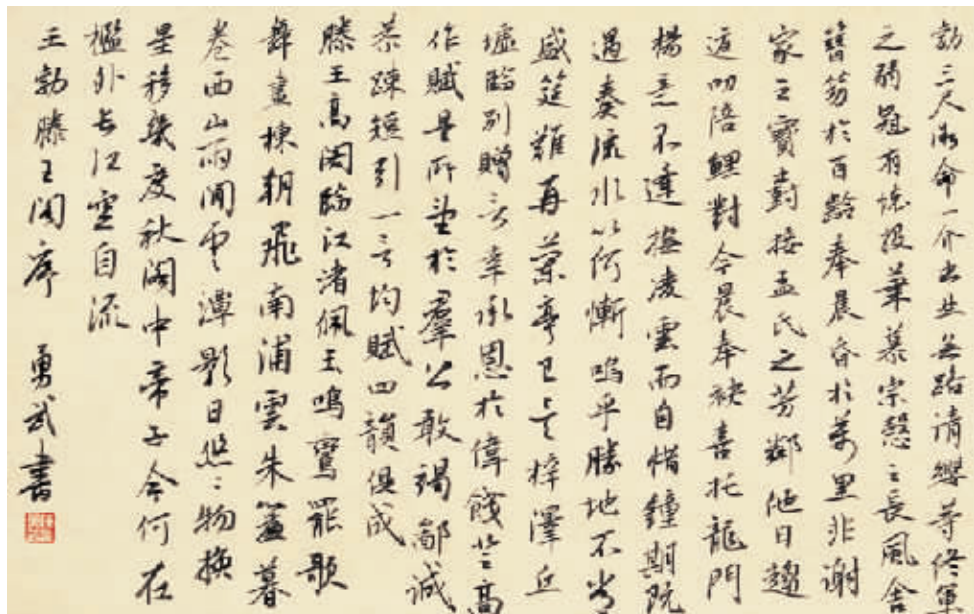 勃三尺微命一介書生無路請纓等終軍
之弱冠有懷投筆慕宗愨之長風舍
簪笏於百齡奉晨昏於萬里非謝
家之寶樹接孟氏之芳鄰他日趨
庭叨陪鯉對今晨奉袂喜托龍門
楊意不逢撫凌雲而自惜鐘期既
遇奏流水以何慚嗚乎勝地不常
盛筵難再蘭亭已矣梓澤丘
墟臨別贈言幸承恩於偉餞登高
作賦是所望於羣公敢竭鄙誠
恭疎短引一言均賦四韻俱成
滕王高閣臨江渚佩玉鳴鸞罷歌
舞畫棟朝飛南浦雲朱簾暮
卷西山雨閒雲潭影日悠〻物換
星移幾度秋閣中帝子今何在
檻外長江空自流
王勃滕王閣序 勇武書